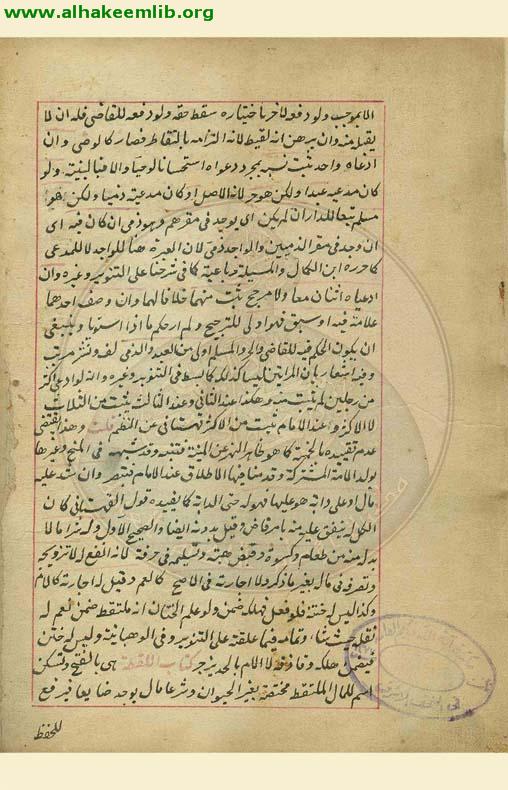 www.alhakeemlib.org
الا بموجب ولو دفعه لآخر باختياره سقط حقه ولو دفعه للقاضي فله ان لا
يقبله منه وان برهن انه لقيط لانه التزامه بالتقاط فصار كالوصي وان
ادعاه واحد ثبت نسبه بمجرد دعواه استحسانا لو حيا والا فبالبينة ولو
كان مدعيه عبدا ولكن هو حر لانه الاصل او كان مدعيه ذميا ولكن هو
مسلم تبعا للدار ان لم يكن اي يوجد في مقرهم وهو ذمي ان كان فيه اي
ان وجد في مقر الذميين والواجد ذمي لان العبرة هنا للواجد لا للمدعي
كما حرره ابن الكمال والمسئلة رباعية كما في شرحنا على التنوير وغيره وان
ادعياه اثنان معا ولا مرجح ثبت منهما وان وصف احدهما
علامة فيه او سبق فهو اولى للترجيح ولم ار حكم ماذا استويا وينبغي
ان يكون الحكم فيه للقاضي والحر والمسلم اولى من العبد والذمي لف ونشر مرتب
وفيه اشعار بان المراتين ليسا كذلك كما بسط في التنوير وغيره وانه لو ادعى اكثر
من رجلين لم يثبت منه وهكذا عند الثاني وعند الثالث يثبت من الثلاث
لا الاكثر وعند الامام ثبت من الاكثر قهستاني عن النظم قلت وهذا يقتضي
عدم تقييده بالخمسة كما هو ظاهر النهر عن المنية فتنبه وقد شبهه في المنح وغيرها
بولد الامة المشتركة وقدمنا فيها الاطلاق عند الامام فتبصر وان شد عليه
مال او على دابة هو عليها فهو له حتى الدابة كما يفيده قول القهستاني كان
الكل له ينفق عليه منه بامر قاض وقيل بدونه ايضا والصحيح الاول وله شراء ما لا
بد له منه من طعام وكسوة وقبض هبته وتسليمه في حرفة لانه انفع له لا تزويجه
وتصرفه في ماله بغير ما ذكر ولا اجارته في الاصح كالعم وقيل له اجارته كالام
وكذا ليس له ختنه فلو فعل فهلك ضمن ولو علم الختان انه ملتقط ضمن نعم له
نقله حيث شاء وتمامه فيما علقته على التنوير وفي الوهبانية وليس له ختن
فيضمن هلكه كتاب اللقطة هي بالفتح وتسكن
اسم للمال الملتقط مختصة بغير الحيوان وشرعا مال يوجد ضايعا فيرفع
للحفظ